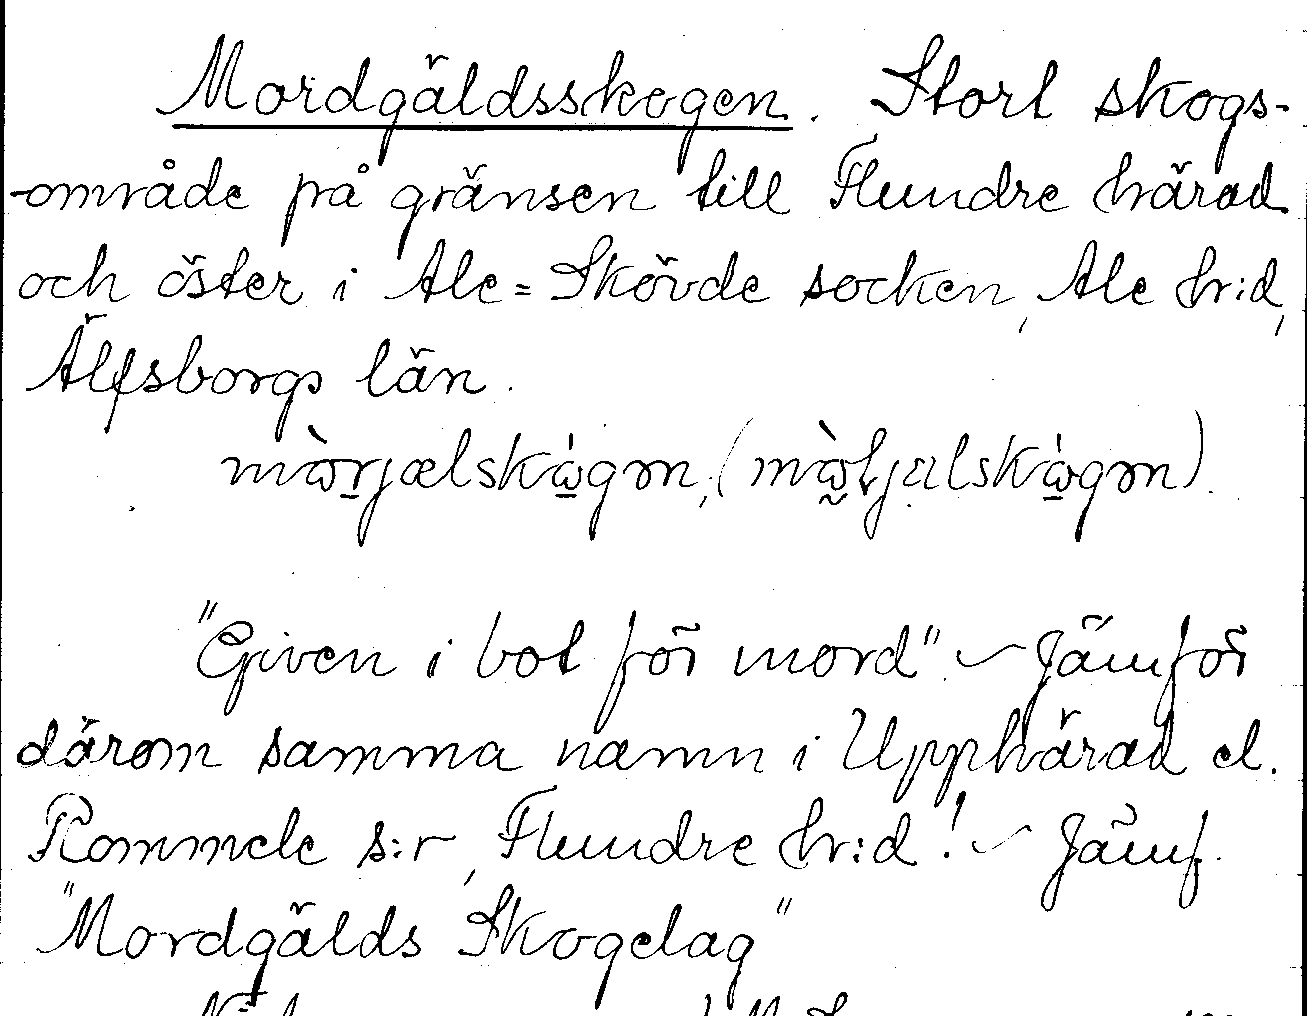 Mordgäldsskogen. Stort skogs-
-område på gränsen till Flundre härad
och öster i Ale=Skövde socken, Ale hr:d,
Älfsborgs län.
mɷ̀rjælskɷ́gɷn, (mɷ̀ɽjælskɷ́gɷn).
"Given i bot för mord" ~ Jämför
därom samma namn i Upphärad el.
Rommele s:r, Flundre hr:d! ~ Jämf.
"Mordgälds Skogelag"